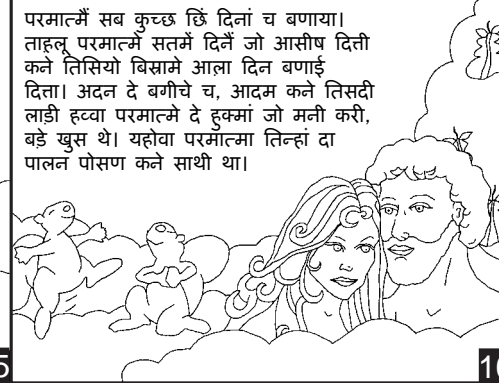 परमात्मैं सब कुच्छ छिं दिनां च बणाया।
ताह्लू परमात्मे सतमें दिनैं जो आसीष दित्ती
कने तिसियो बिस्रामे आल़ा दिन बणाई
दित्ता। अदन दे बगीचे च, आदम कने तिसदी
लाड़ी हव्वा परमात्मे दे हुक्मां जो मनी करी,
बड़े खुस थे। यहोवा परमात्मा तिन्हां दा
पालन पोसण कने साथी था।
5